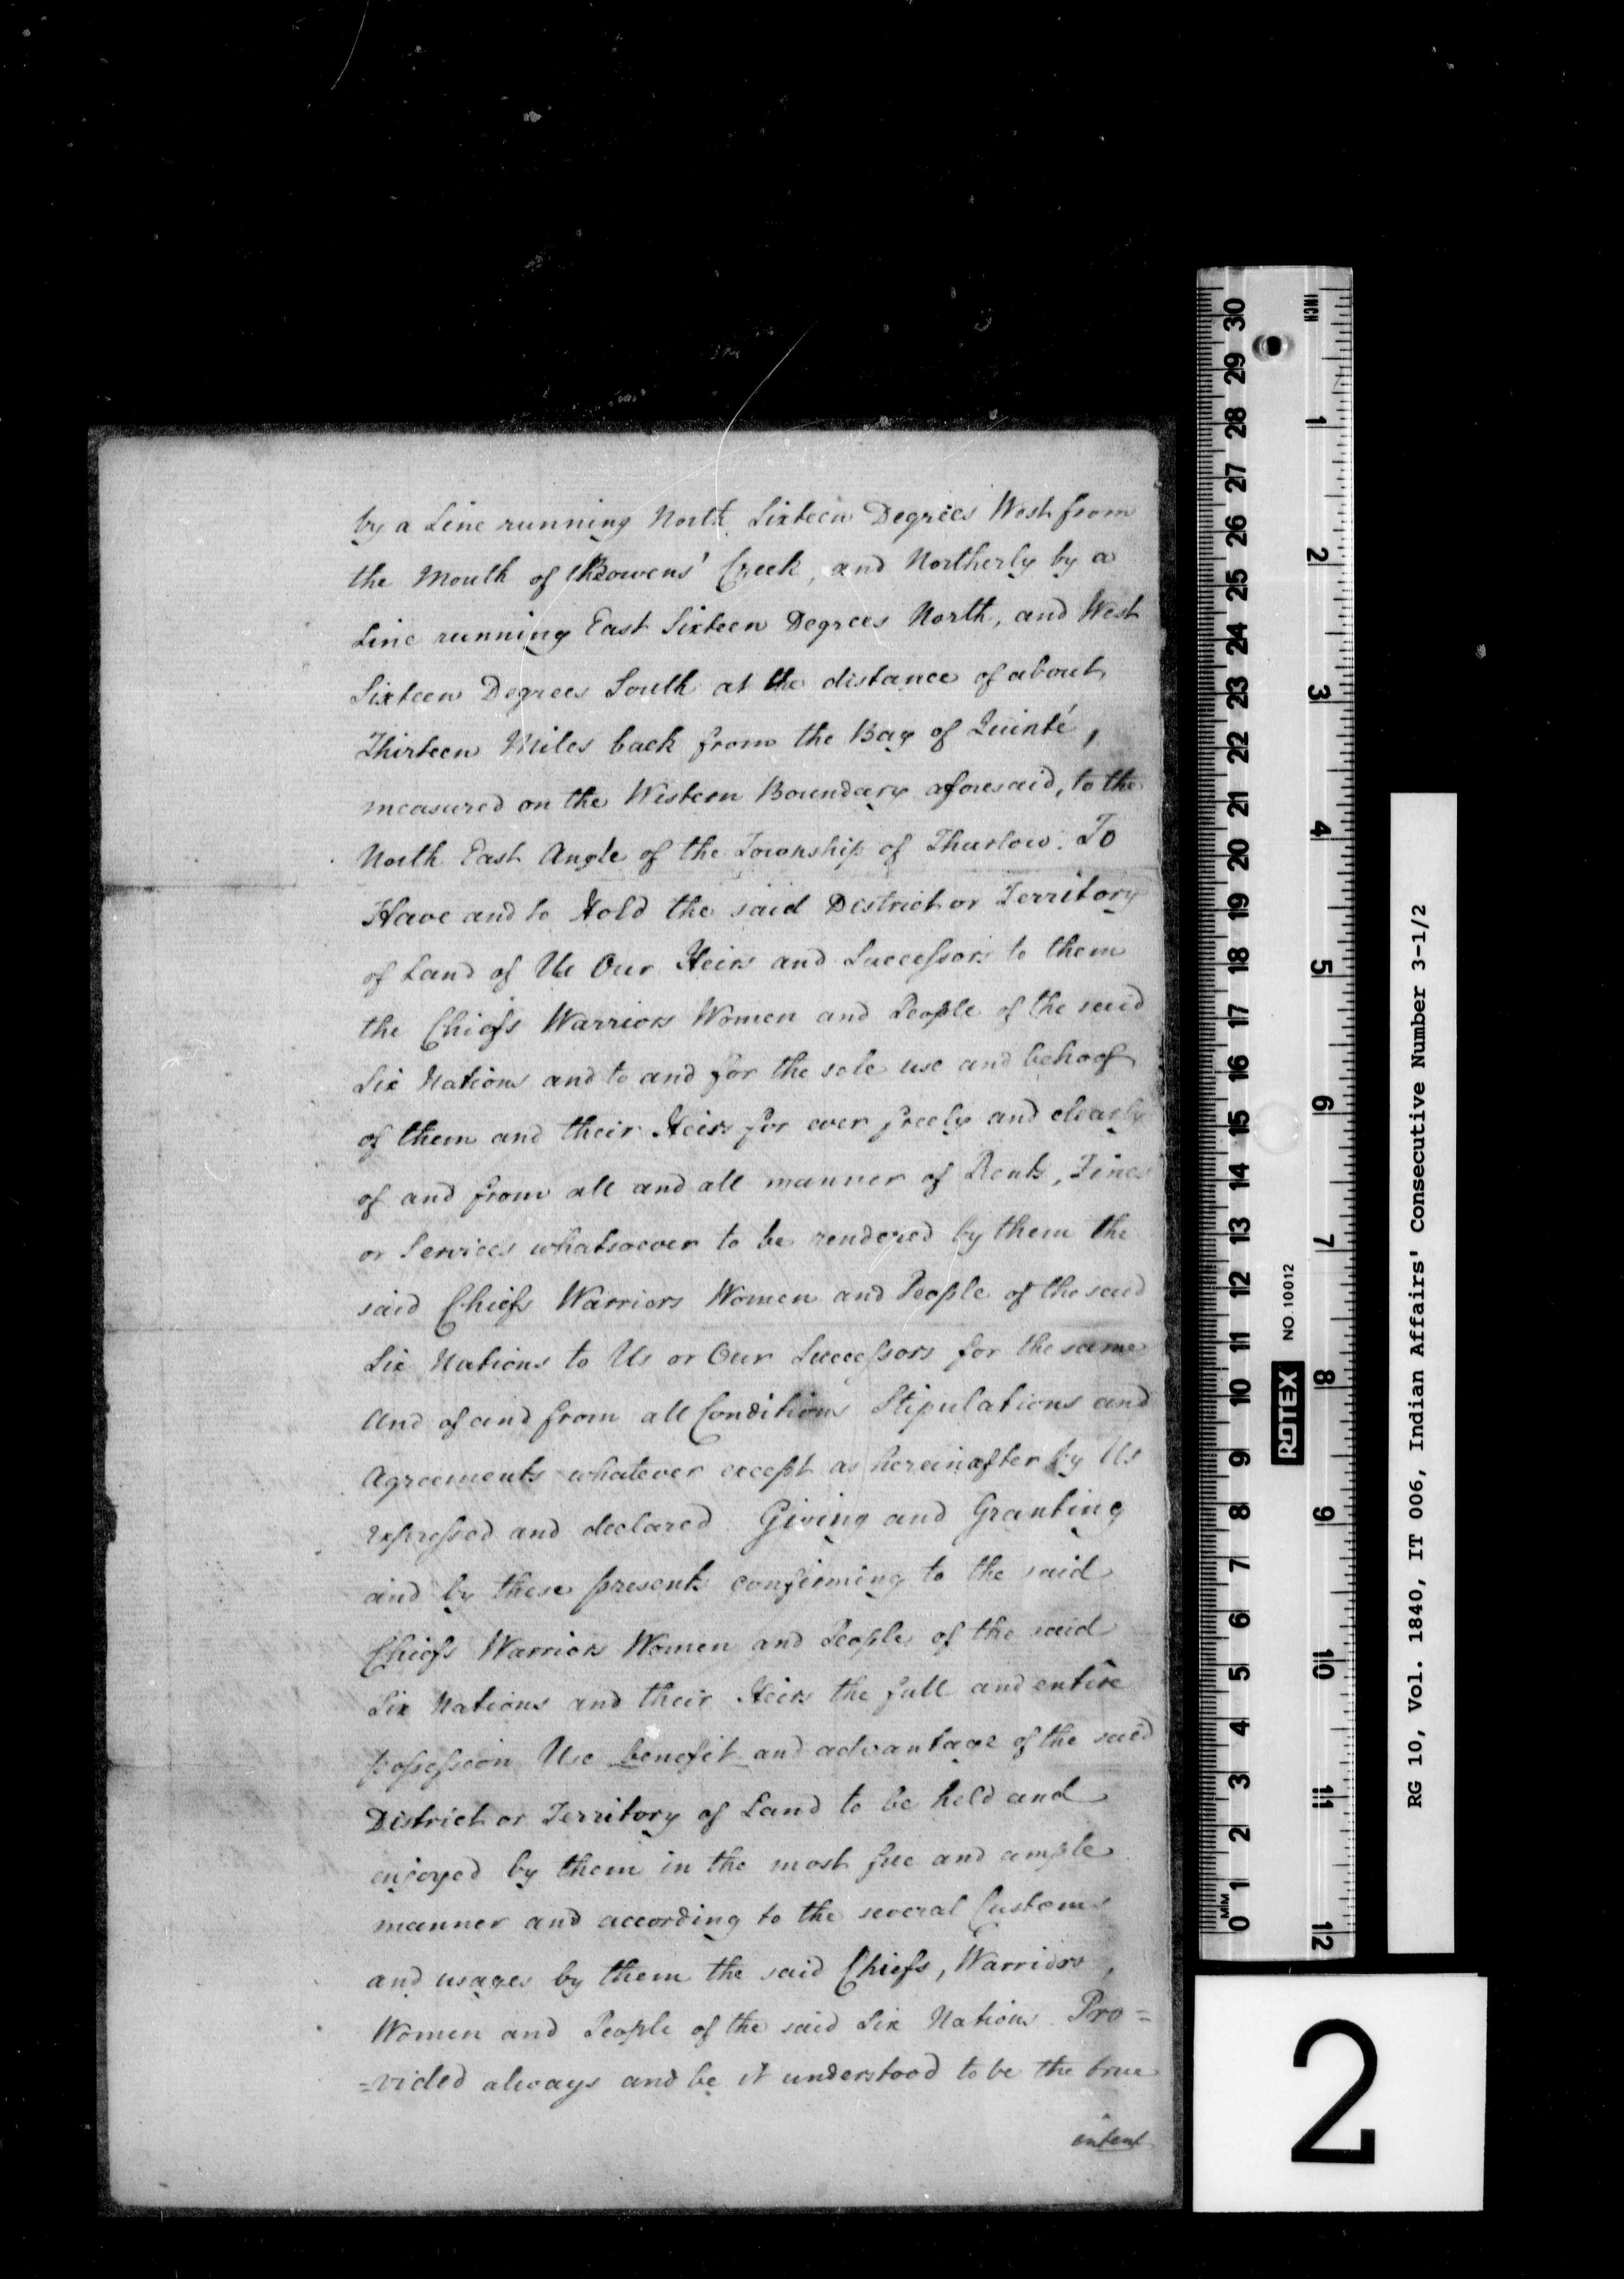 by a Line running North Sixteen Degrees West from
the Mouth of Bowens' Creek, and Northerly by a
Line running East Sixteen Degrees North, and West
Sixteen Degrees South at the distance of about
Thirteen Miles back from the Bay of Quinté,
measured on the Western Boundary aforesaid, to the
North East Angle of the Township of Thurlow. To
Have and to Hold the said District or Territory
of Land of Us Our Heirs and Successors to them
the Chiefs Warriors Women and People of the said
Six Nations and to and for the sole use and behoof
of them and their Heirs for ever freely and clearly
of and from all and all manner of Rents, Fines
or Services whatsoever to be rendered by them the
said Chiefs Warriors Women and People of the said
Six Nations to Us or Our Successors for the same
And of and from all Conditions Stipulations and
Agreements whatever except as hereinafter by Us
expressed and declared. Giving and Granting
and by these presents confirming to the said
Chiefs Warriors Women and People of the said
Six Nations and their Heirs the full and entire
possession Use benefit and advantage of the said
District or Territory of Land to be held and
enjoyed by them in the most free and ample
manner and according to the several Customs
and usages by them the said Chiefs, Warriors,
Women and People of the said Six Nations. Pro=
=vided always and be it understood to be the true
intent
INCH
1 2 3 4 5 6 7 8 9 10 11 12
30 29 28 27 26 25 24 23 22 21 20 19 18 17 16 15 14 13 12 11 10 9 8 7 6 5 4 3 2 1 0
MM
NO. 10012
ROTEX
RG 10, Vol. 1840, IT 006, Indian Affairs' Consecutive Number 3-1/2
2